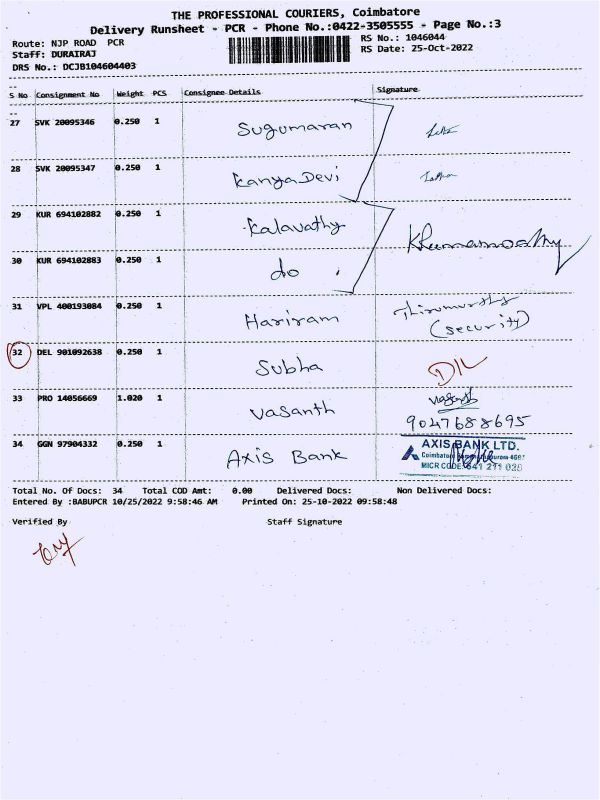 THE PROFESSIONAL COURIERS, Coimbatore
Delivery Runsheet - PCR - Phone No.:0422-3505555 - Page No.:3
Route: NJP ROAD PCR RS No.: 1046044
Staff: DURAIRAJ RS Date: 25-Oct-2022
DRS No.: DCJB104604403
S No Consignment No Weight PCS Consignee Details Signature
27 SVK 20095346 0.250 1 Sugumaran
28 SVK 20095347 0.250 1 KanyaDevi
29 KUR 694102882 0.250 1 Kalavathy
30 KUR 694102883 0.250 1 do
31 VPL 400193084 0.250 1 Hariram Thirumurthy
(security)
32 DEL 901092638 0.250 1 Subha
33 PRO 14056669 1.020 1 Vasanth Vasanth
9047688695
34 GGN 97904332 0.250 1 Axis Bank AXIS BANK LTD.
MICR CODE
Total No. Of Docs: 34 Total COD Amt: 0.00 Delivered Docs: Non Delivered Docs:
Entered By :BABUPCR 10/25/2022 9:58:46 AM Printed On: 25-10-2022 09:58:48
Verified By Staff Signature